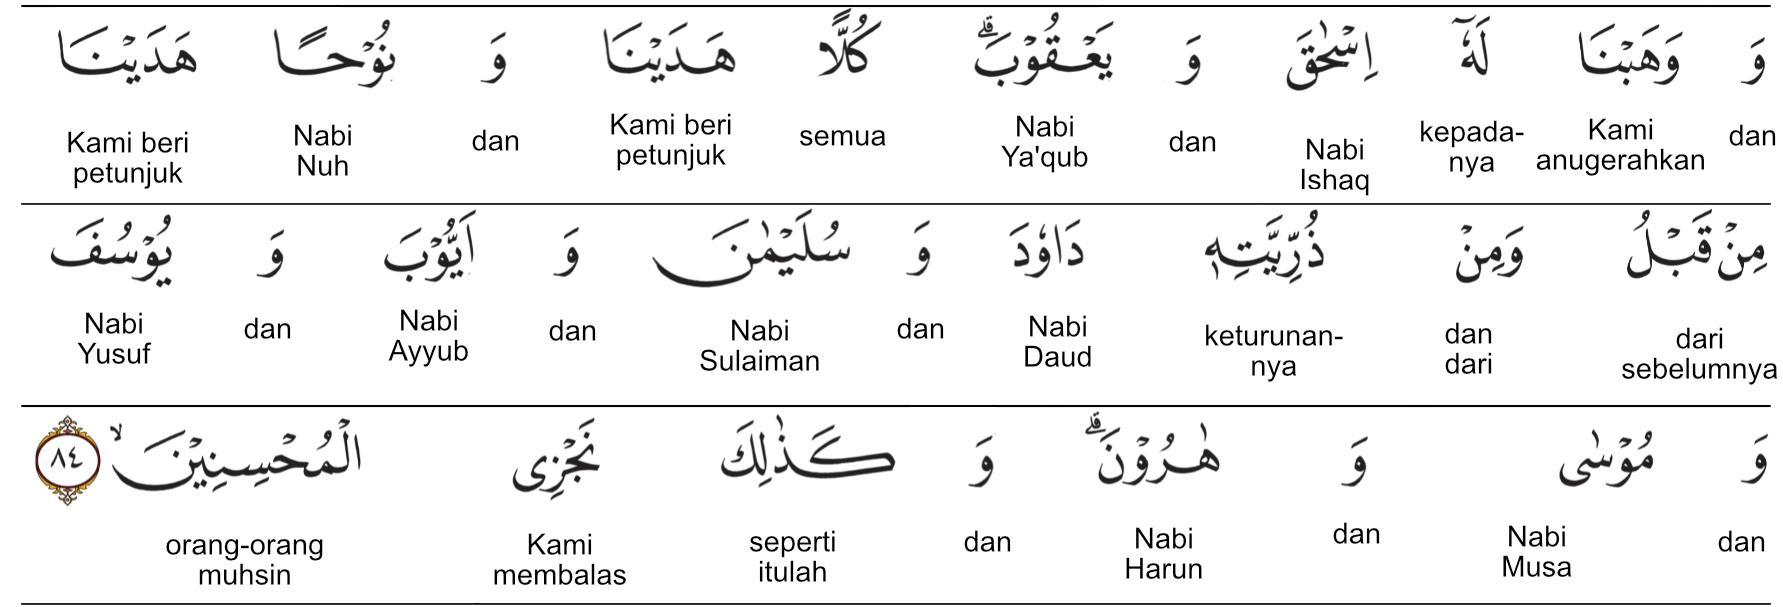 وَ وَهَبْنَا لَهٗٓ اِسْحٰقَ وَ يَعْقُوْبَۗ كُلًّا هَدَيْنَا وَ نُوْحًا هَدَيْنَا
dan Kami anugerahkan kepada-nya Nabi Ishaq dan Nabi Ya'qub semua Kami beri petunjuk dan Nabi Nuh Kami beri petunjuk
مِنْ قَبْلُ وَمِنْ ذُرِّيَّتِهٖ دَاوٗدَ وَ سُلَيْمٰنَ وَ اَيُّوْبَ وَ يُوْسُفَ
dari sebelumnya dan dari keturunan-nya Nabi Daud dan Nabi Sulaiman dan Nabi Ayyub dan Nabi Yusuf
وَ مُوْسٰى وَ هٰرُوْنَۗ وَ كَذٰلِكَ نَجْزِى الْمُحْسِنِيْنَۙ ٨٤
dan Nabi Musa dan Nabi Harun dan seperti itulah Kami membalas orang-orang muhsin